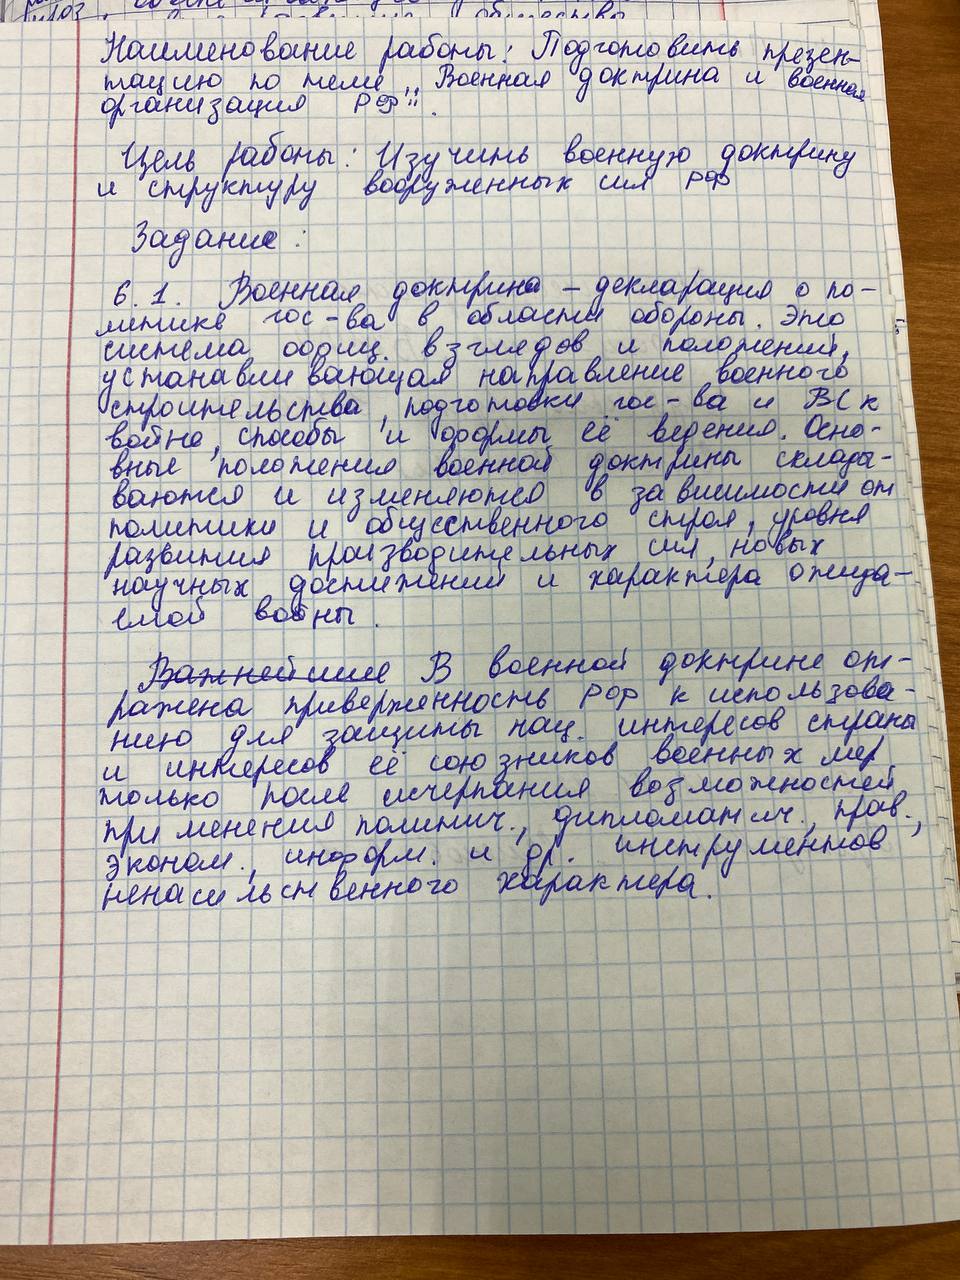 Наименование работы: Подготовить презен-
тацию по теме „Военная доктрина и военная
организация РФ".
Цель работы: Изучить военную доктрину
и структуру вооруженных сил РФ
Задание:
6.1. Военная доктрина – декларация о по-
литике гос-ва в области обороны. Это
система офиц. взглядов и положений,
устанавливающая направление военного
строительства, подготовки гос-ва и ВС к
войне, способы и формы её ведения. Осно-
вные положения военной доктрины склады-
ваются и изменяются в зависимости от
политики и общественного строя, уровня
развития производительных сил, новых
научных достижений и характера ожида-
емой войны.
Важнейшие В военной доктрине от-
ражена приверженность РФ к использова-
нию для защиты нац. интересов страны
и интересов её союзников военных мер
только после исчерпания возможностей
применения политич., дипломатич., прав.,
эконом., информ. и др. инструментов
ненасильственного характера.